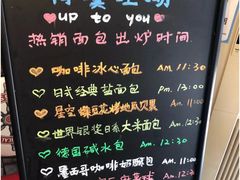 up to you
热销面包出炉时间
咖啡冰心面包 Am. 11:30
日式经典盐面包 Am. 11:00
星空 烤地瓜贝果 Am. 11:00
世界银奖日系大米面包 Am. 12:30
德国碱水包 Am. 12:30
墨西哥咖啡奶酥包 Am.